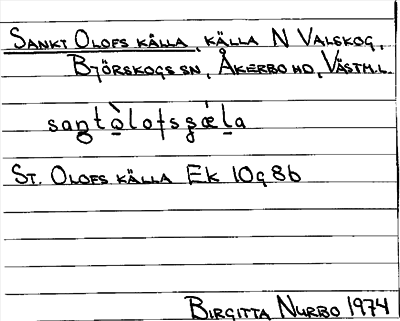 SANKT OLOFS KÄLLA, KÄLLA N VALSKOG,
BJÖRSKOGS SN, ÅKERBO HD, VÄSTM.L.
ST. OLOFS KÄLLA EK 10g 8b
BIRGITTA NURBO 1974